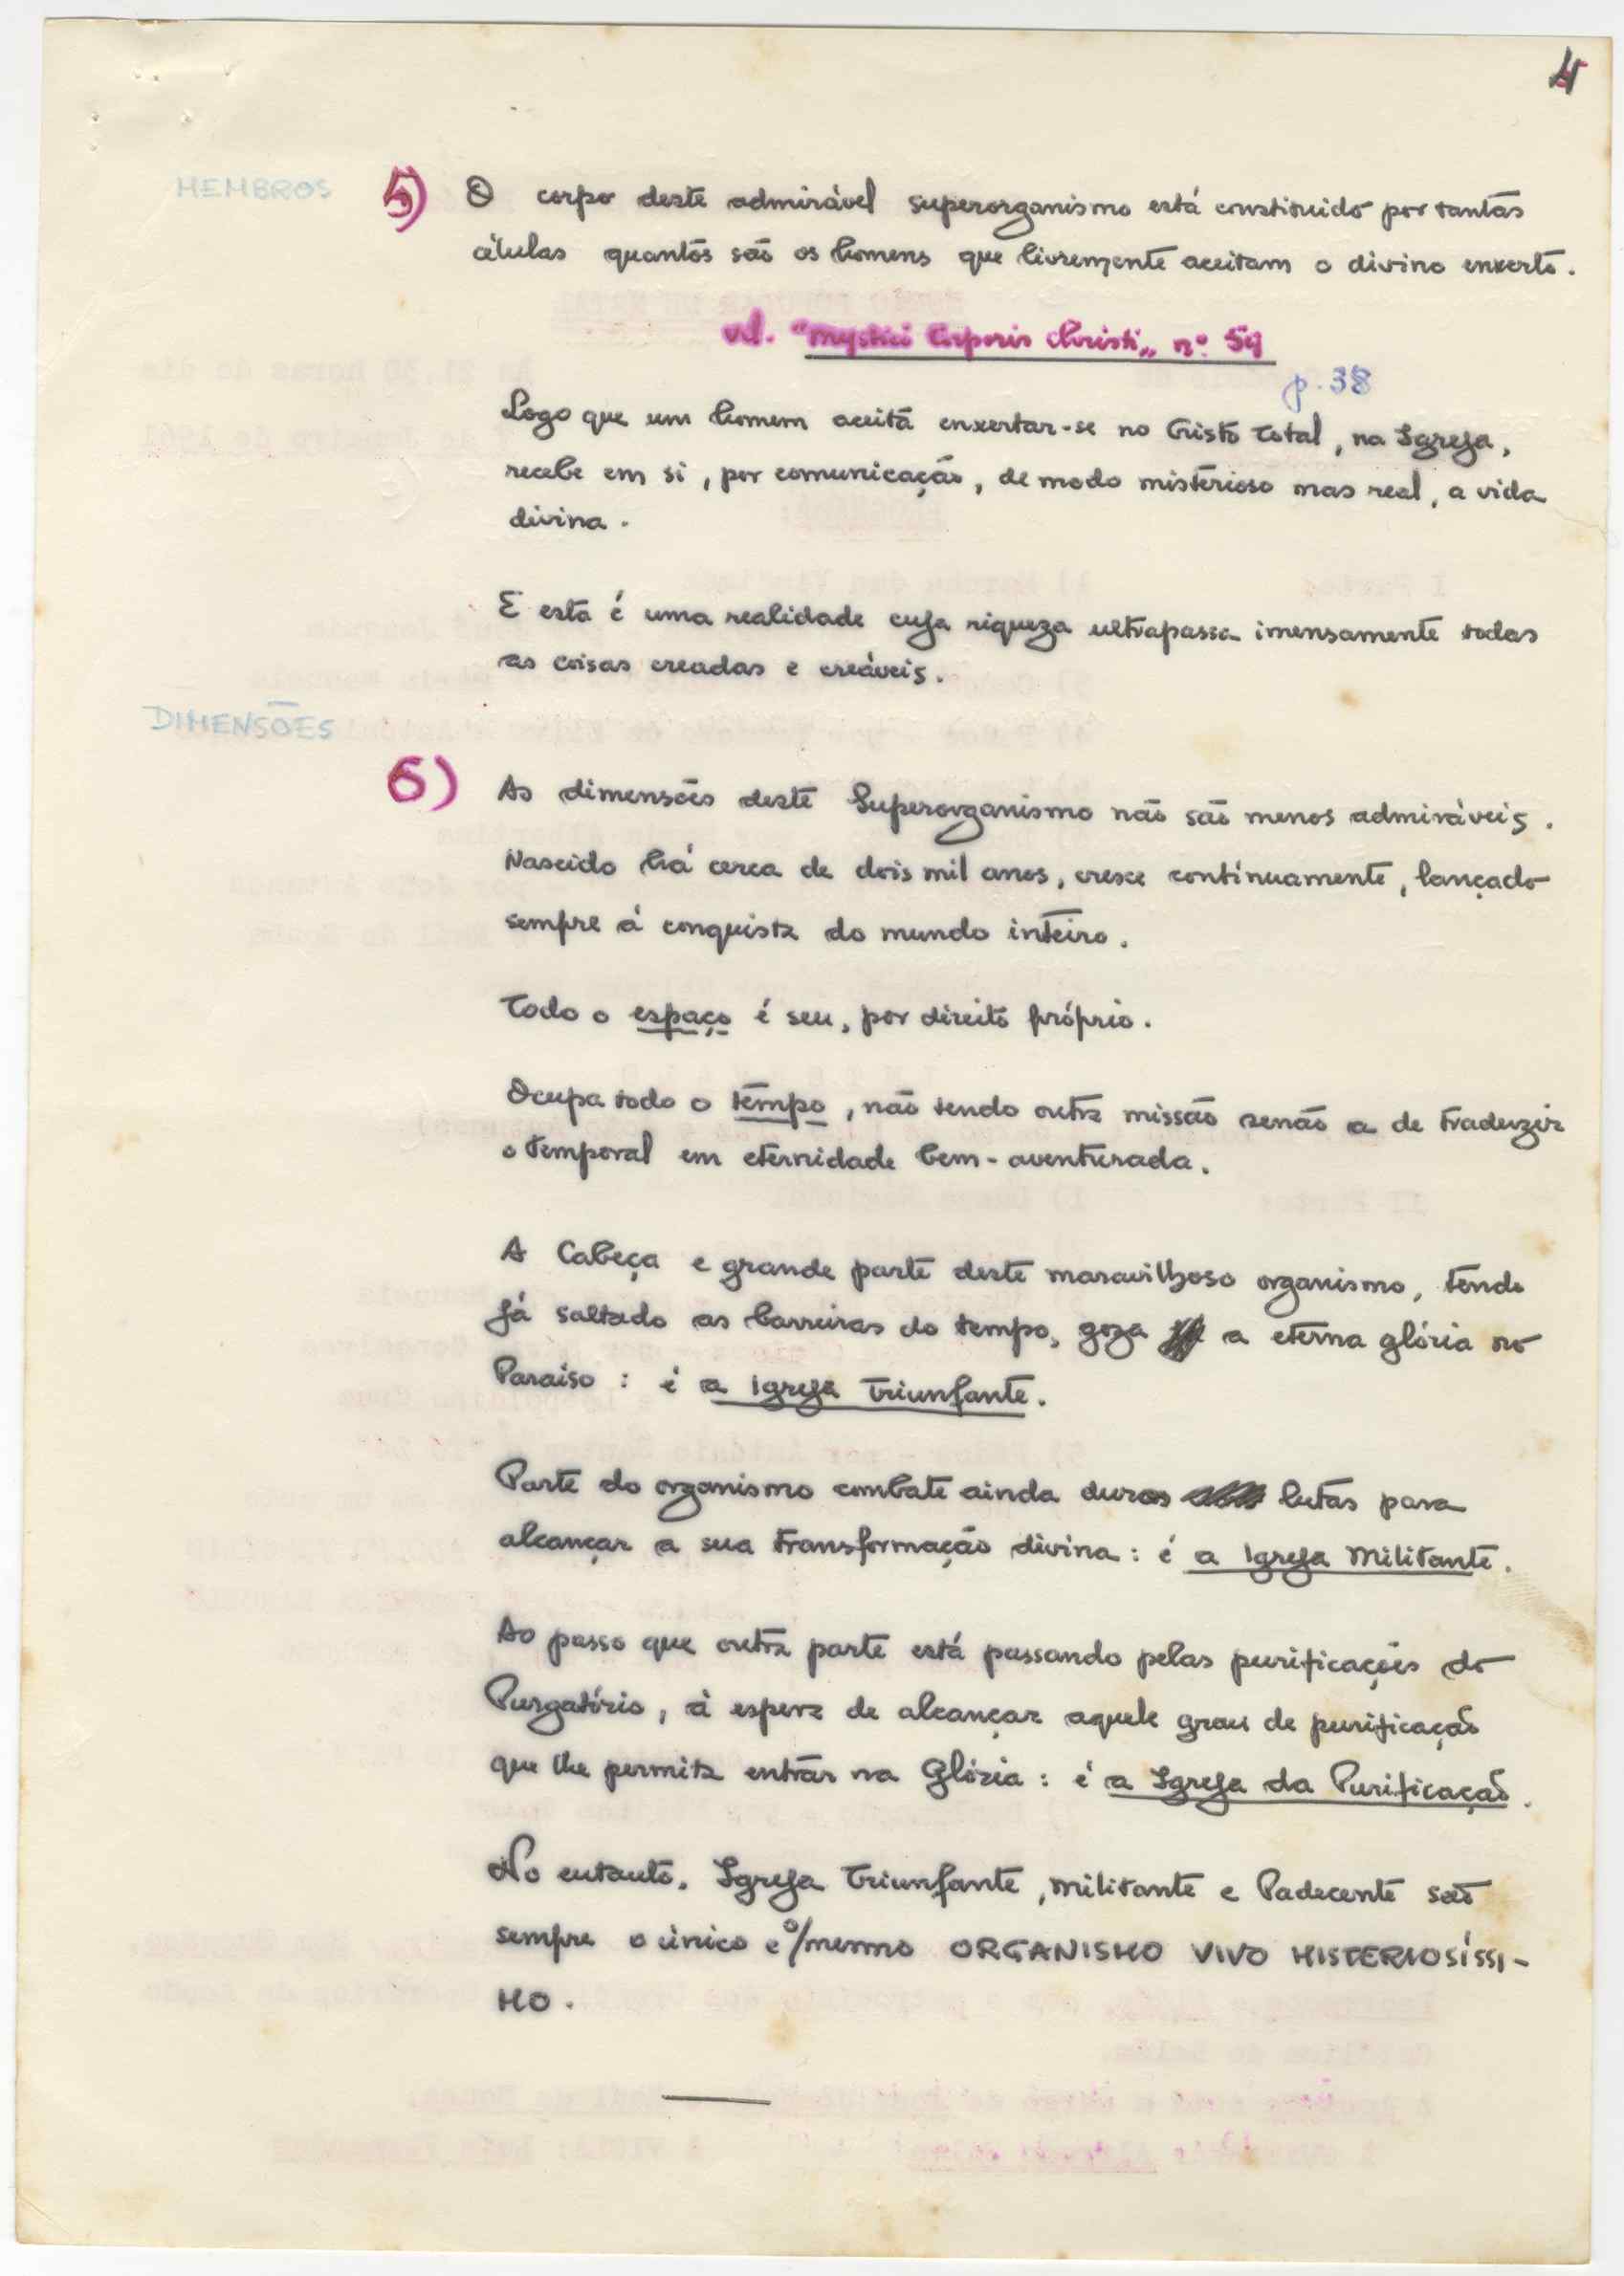 4
MEMBROS
5) O corpo deste admirável superorganismo está constituido por tantas
células quantos são os homens que livremente aceitam o divino enxerto.
vid. "Mystici Corporis Christi" nº 59
p. 38
Logo que um homem aceita enxertar-se no Cristo Total, na Igreja,
recebe em si, por comunicação, de modo misterioso mas real, a vida
divina.
E esta é uma realidade cuja riqueza ultrapassa imensamente todas
as coisas creadas e creáveis.
DIMENSÕES
6) As dimensões deste Superorganismo não são menos admiráveis.
Nascido há cerca de dois mil anos, cresce continuamente, lançado
sempre à conquista do mundo inteiro.
Todo o espaço é seu, por direito próprio.
Ocupa todo o tempo, não tendo outra missão senão a de traduzir
o temporal em eternidade bem-aventurada.
A Cabeça e grande parte deste maravilhoso organismo, tendo
já saltado as barreiras do tempo, goza a eterna glória no
Paraiso: é a Igreja Triunfante.
Parte do organismo combate ainda duras lutas para
alcançar a sua transformação divina: é a Igreja Militante.
Ao passo que outra parte está passando pelas purificações do
Purgatório, à espera de alcançar aquele grau de purificação
que lhe permita entrar na Glória: é a Igreja da Purificação.
No entanto, Igreja Triunfante, militante e Padecente são
sempre o único e o/mesmo ORGANISMO VIVO MISTERIOSÍSSI-
MO.